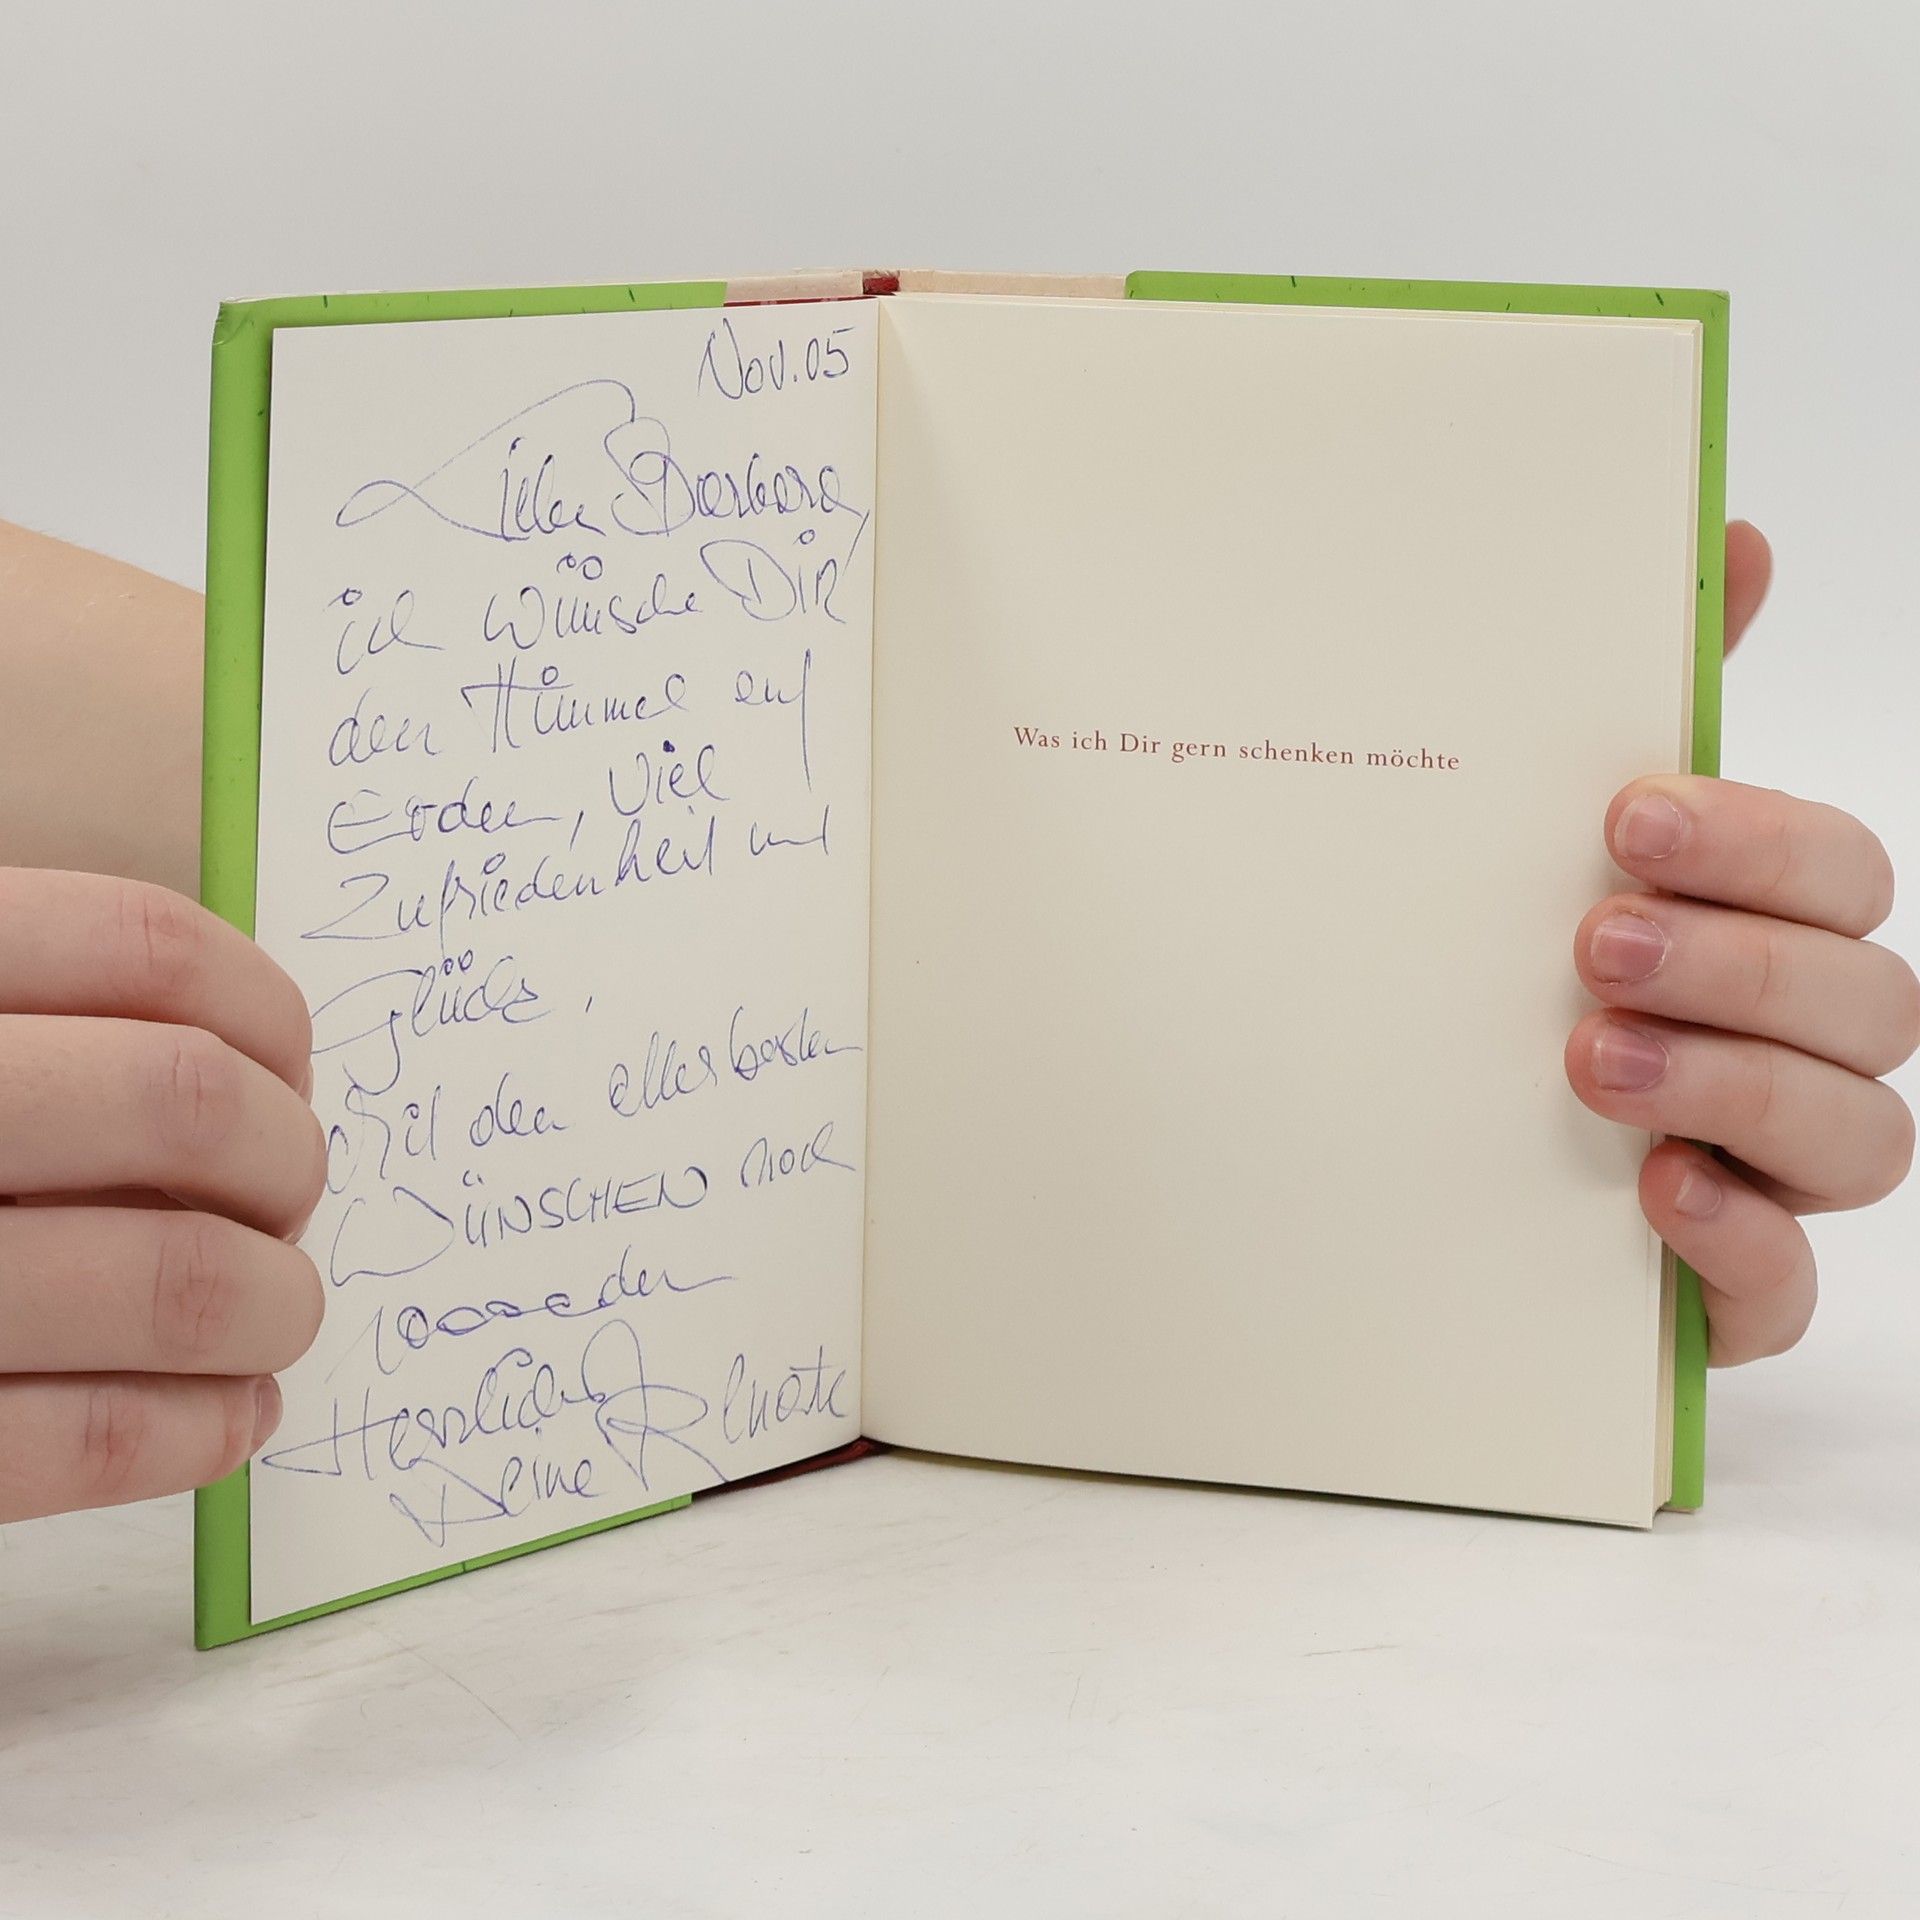 Nov. 05
Liebe Barbara,
ich wünsche Dir
den Himmel auf
Erden, viel
Zufriedenheit und
Glück,
Mit den allerbesten
WÜNSCHEN und
Herzlichst
Deine Renate
Was ich Dir gern schenken möchte